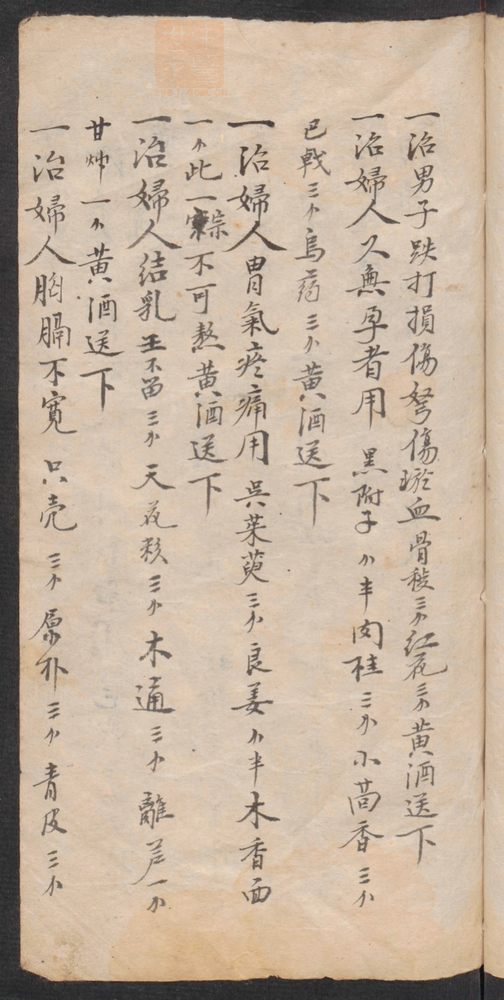 一治男子跌打損傷努傷瘀血骨䂨三分紅花三分黃酒送下
一治婦人久無孕者用 黑附子分半肉桂三分小茴香三分
已戟三分烏药三分黃酒送下
一治婦人胃氣疼痛用 吳茱萸三分良姜分半木香面
一分此一宗不可熬黃酒送下
一治婦人結乳王不留三分天花粉三分木通三分離芦一分
甘艸一分黃酒送下
一治婦人胸膈不寬 只壳三分厚朴三分青皮三分